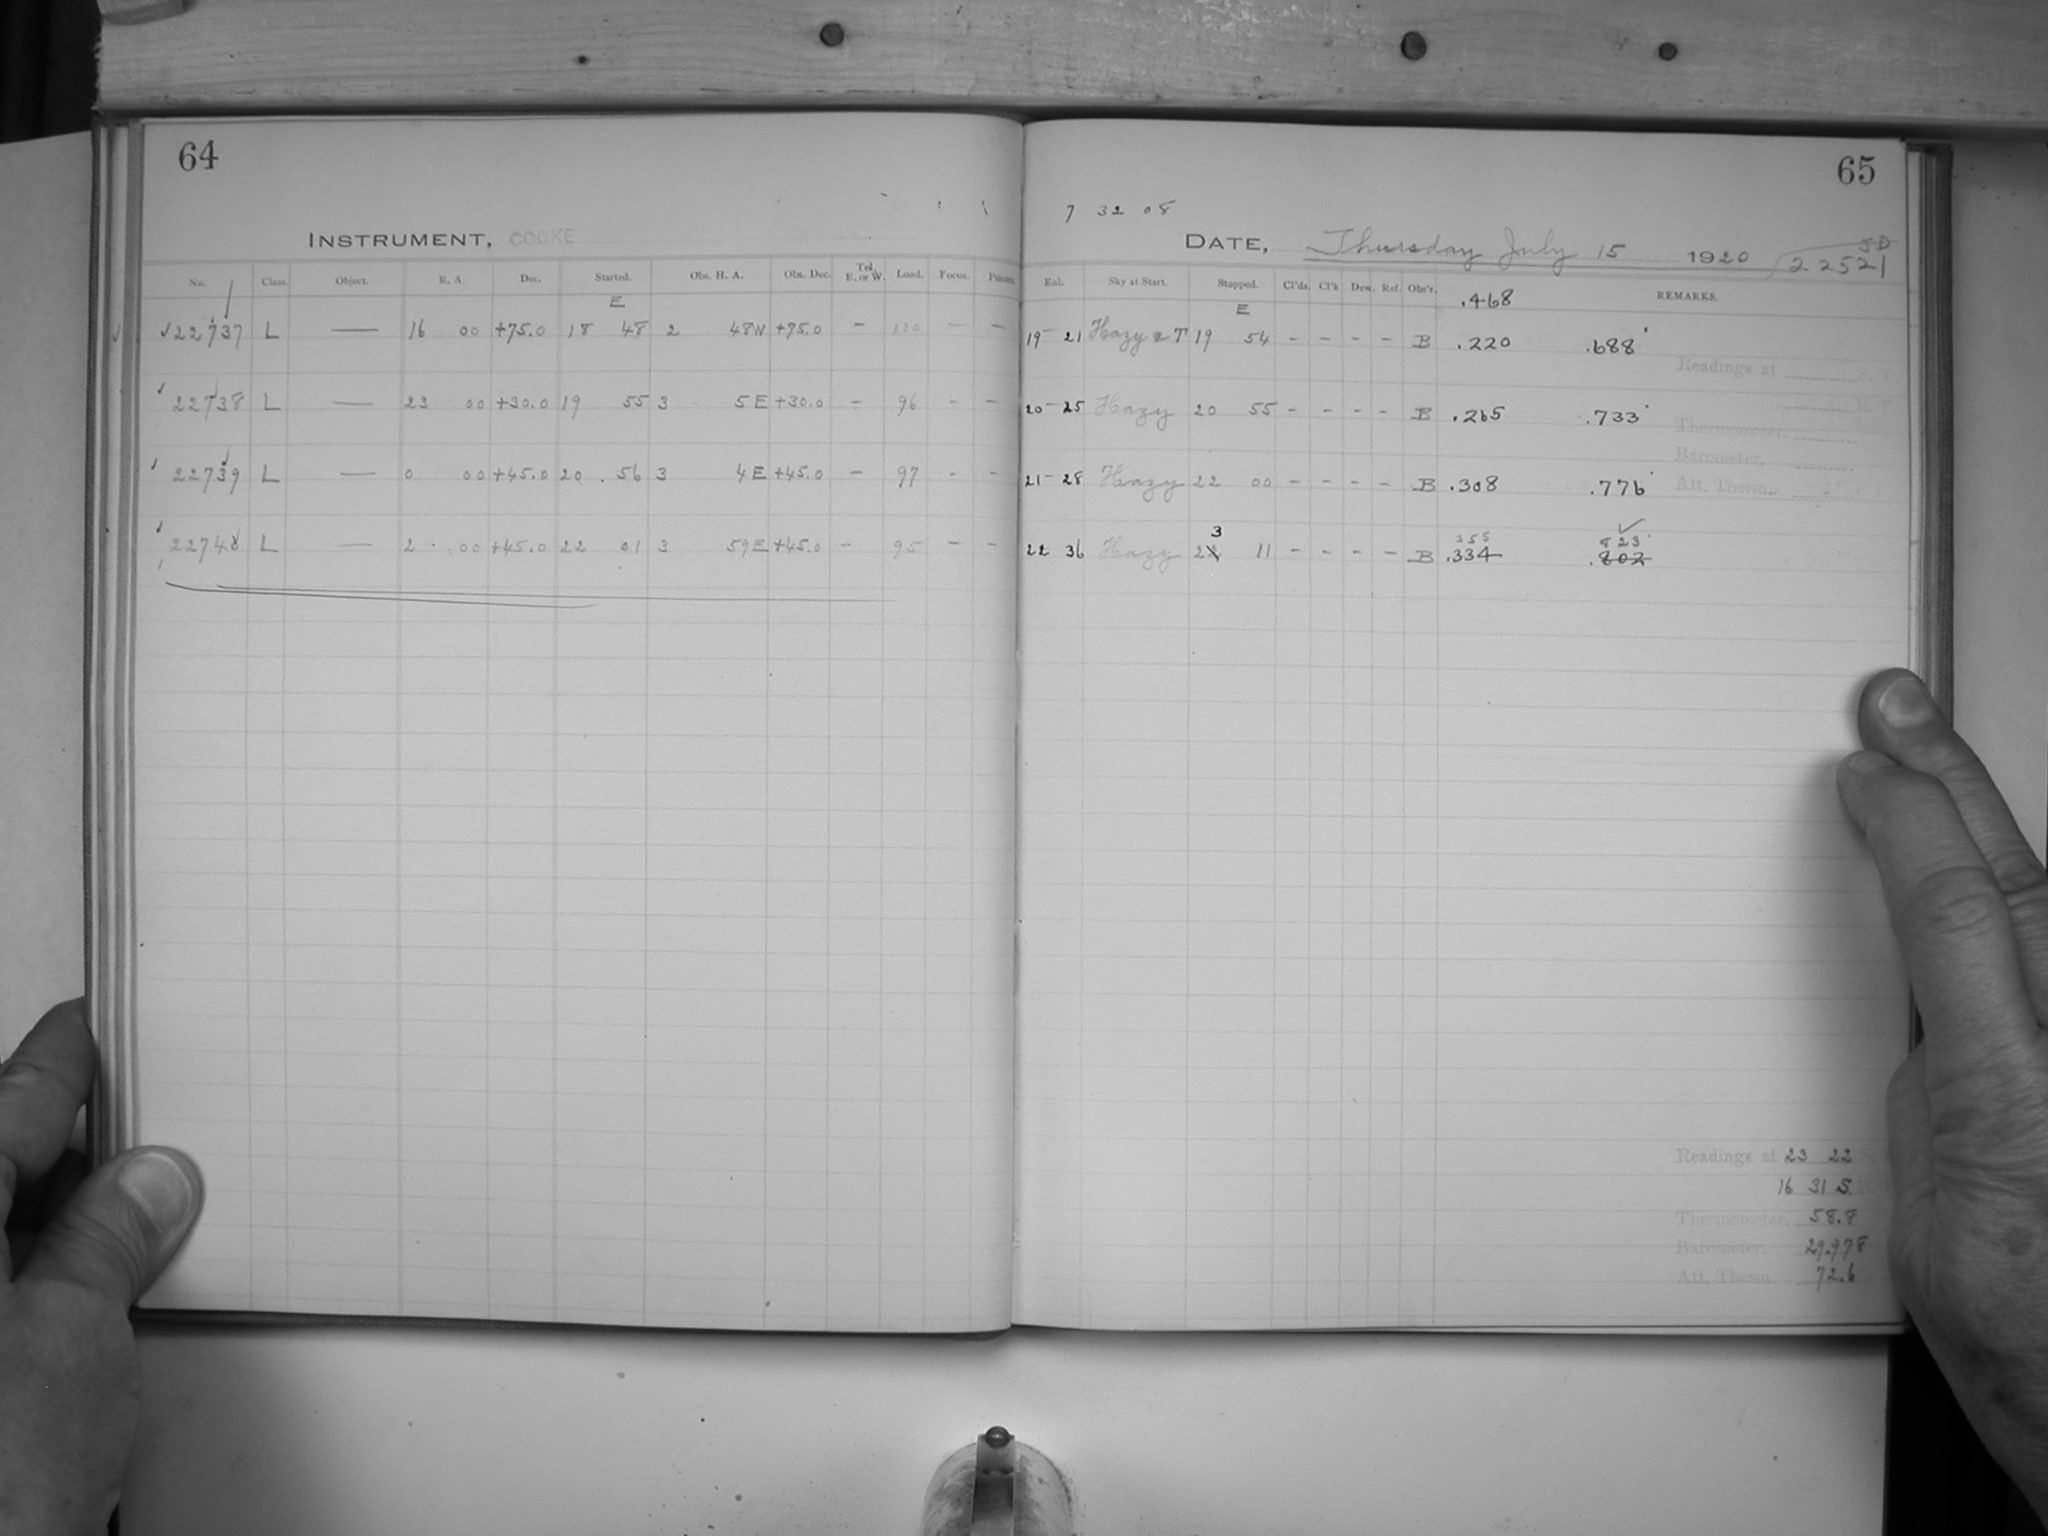 64
INSTRUMENT, COOKE
No. Class. Object. R. A. Dec. Started. Obs. H. A. Obs. Dec. Tel. E. or W. Load. Focus. Prisms
E
22737 L — 16 00 +75.0 18 48 2 48W +75.0 - 100 - -
22738 L — 23 00 +30.0 19 55 3 5E +30.0 - 96 - -
22739 L — 0 00 +45.0 20 56 3 4E +45.0 - 97 - -
22740 L — 2 00 +45.0 22 01 3 59E +45.0 - 95 - -
65
7 32 08
DATE, Thursday July 15 1920
JD
22521
Sky at Start. Stopped. Cl'ds. Cl'k Dew. Ref. Obs'r. .468 REMARKS.
E
19-21 Hazy & T 19 54 - - - - B .220 .688
Readings at S. T.
20-25 Hazy 20 55 - - - - B .265 .733
Thermometer.
Barometer.
21-28 Hazy 22 00 - - - - B .308 .776
Att. Therm.
3 355 823
22 36 Hazy 22 11 - - - - B .334 .802
Readings at 23 22
16 31 S.
Thermometer. 58.8
Barometer. 29.978
Att. Therm. 72.6